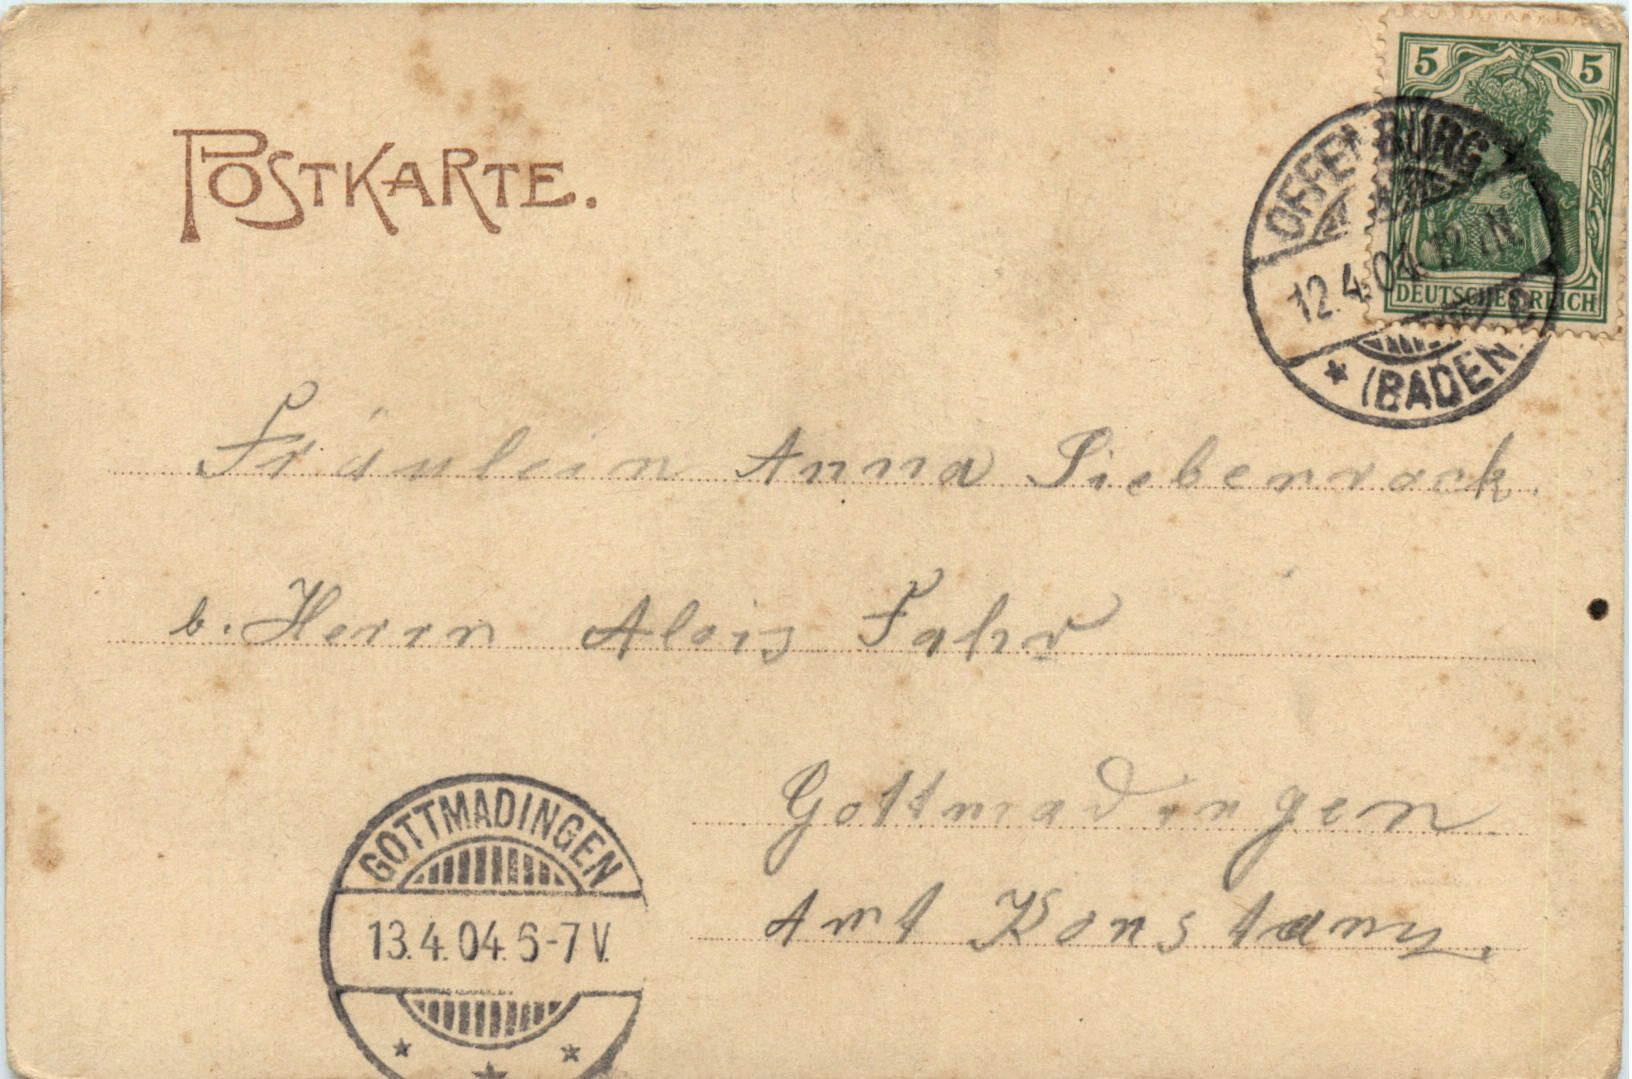 POSTKARTE.
5 5
DEUTSCHES REICH
OFFENBURG
12.4.04. 12
(BADEN)
Fräulein Anna Siebenrock.
b. Herrn Alois Fahr
Gottmadingen
Amt Konstanz.
GOTTMADINGEN
13.4.04. 6-7 V.